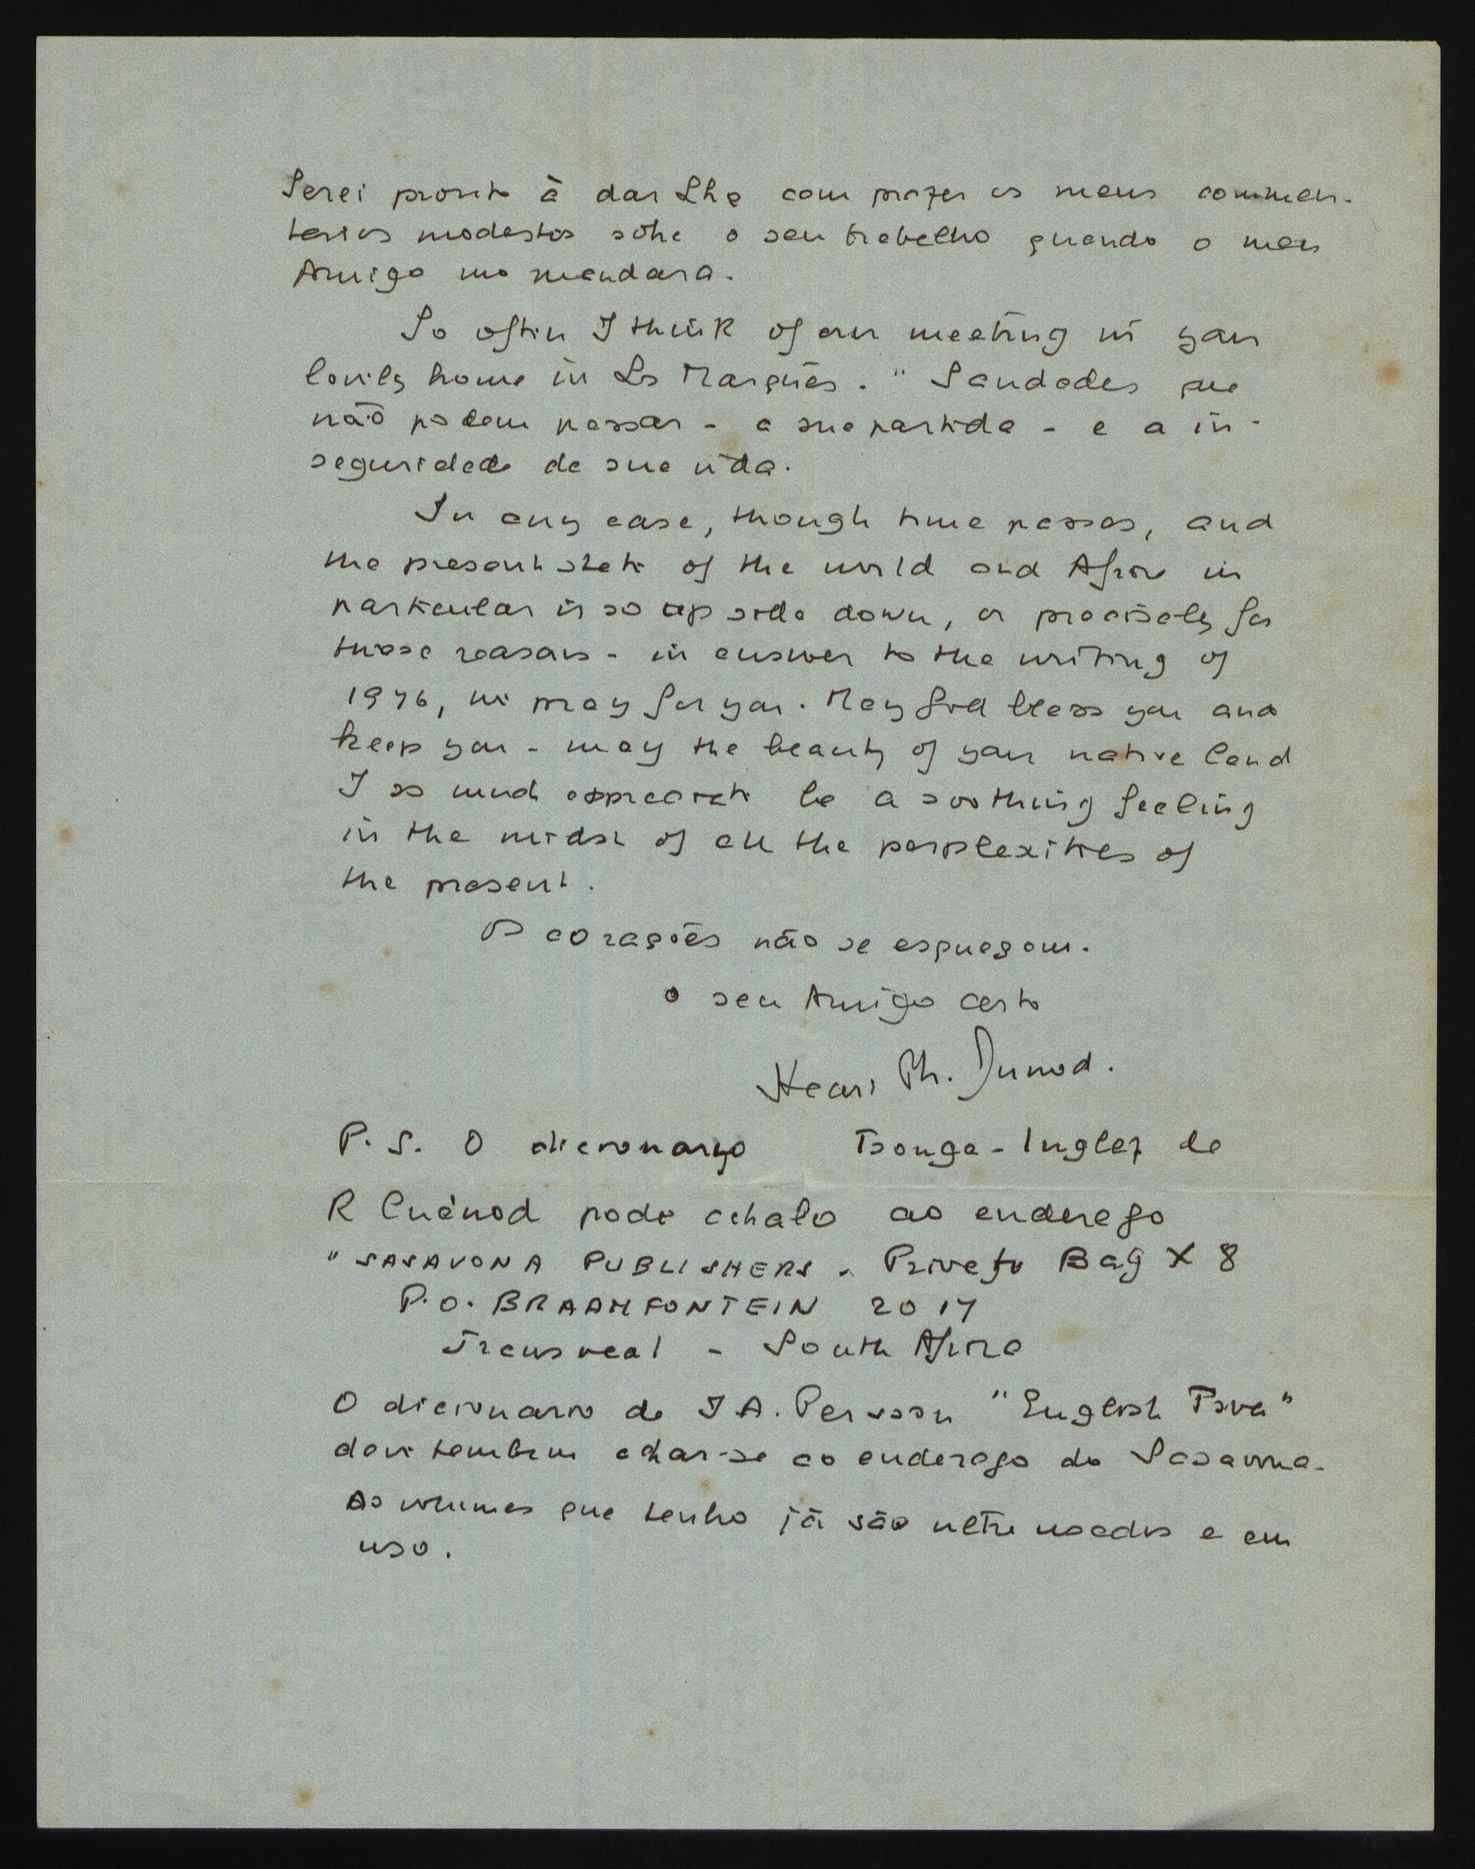 Serei pronto à dar Lhe com prazer os meus commen-
tarios modestos sobre o seu trabalho quando o meu
Amigo mo mandara.
So often I think of our meeting in your
lovely home in Ls Marquès. " Saudades que
não podem passar - a sua partida - e a in-
seguridade de sua vida.
In any case, though time passes, and
the present state of the world and Africa in
particular is so up side down, or precisely for
those reasons - in answer to the writing of
1976, we pray for you. May God bless you and
keep you - may the beauty of your native land
I so much appreciate be a soothing feeling
in the midst of all the perplexities of
the present.
Os corações não se esqueçem.
o seu Amigo certo
Henri Ph. Junod.
P. S. O dicionario Tsonga - Inglez de
R Cuénod pode achalo ao endereço
" SASAVONA PUBLISHERS. Private Bag X 8
P.O. BRAAMFONTEIN 2017
Transvaal - South Africa
O dicionario de J A. Persson "English Tswa"
deve tambem achar-se ao endereço de Sasavona.
Os volumes que tenho já são ultra usados e em
uso.